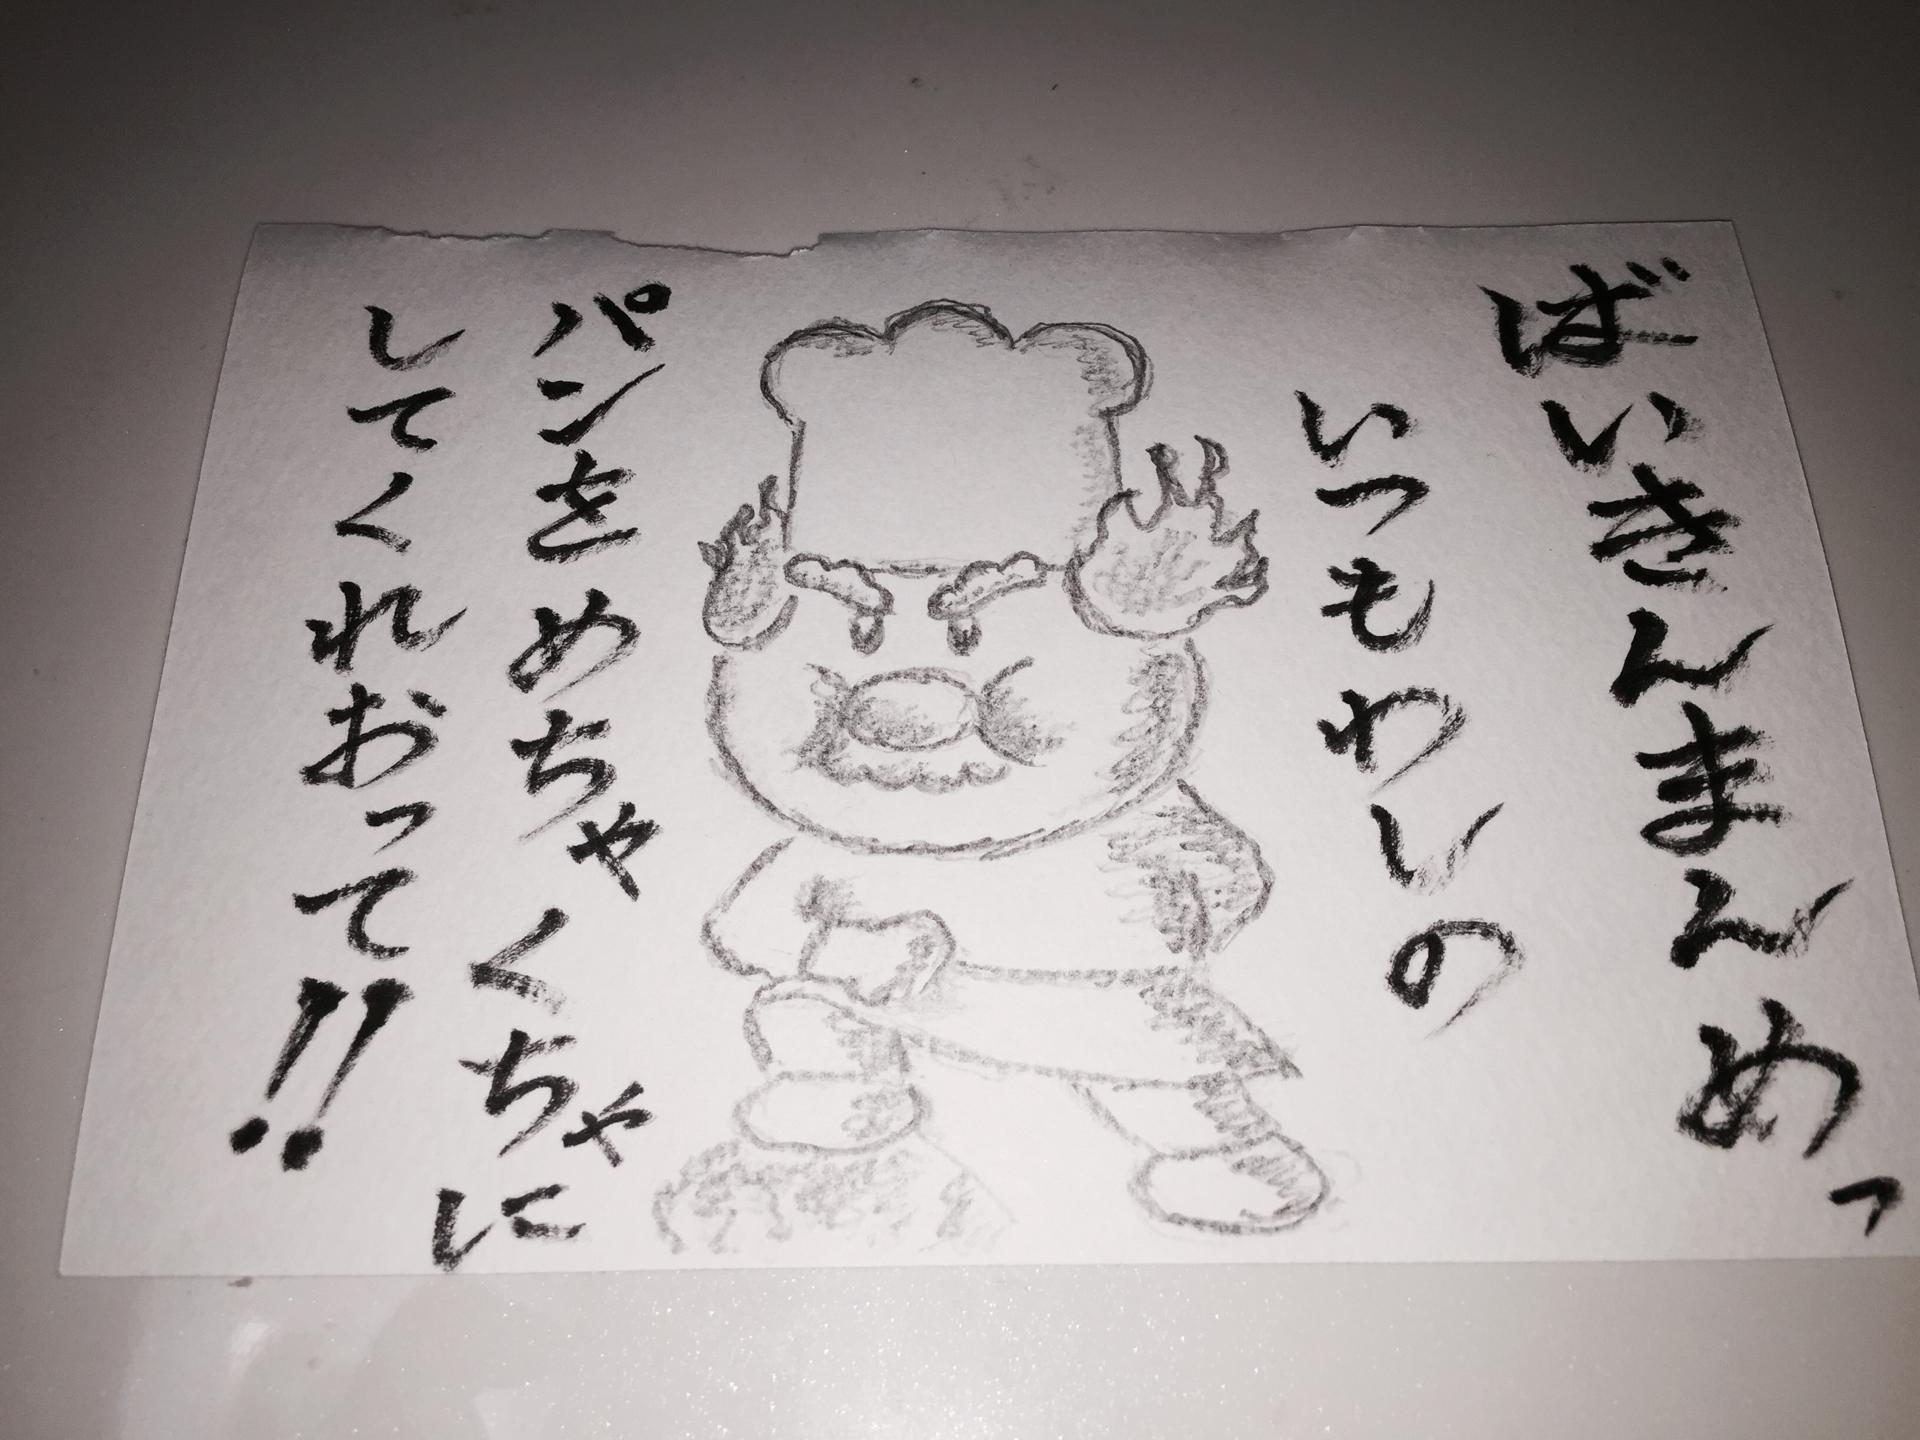 ばいきんまんめっ
いつもわしの
パンをめちゃくちゃに
してくれおって!!